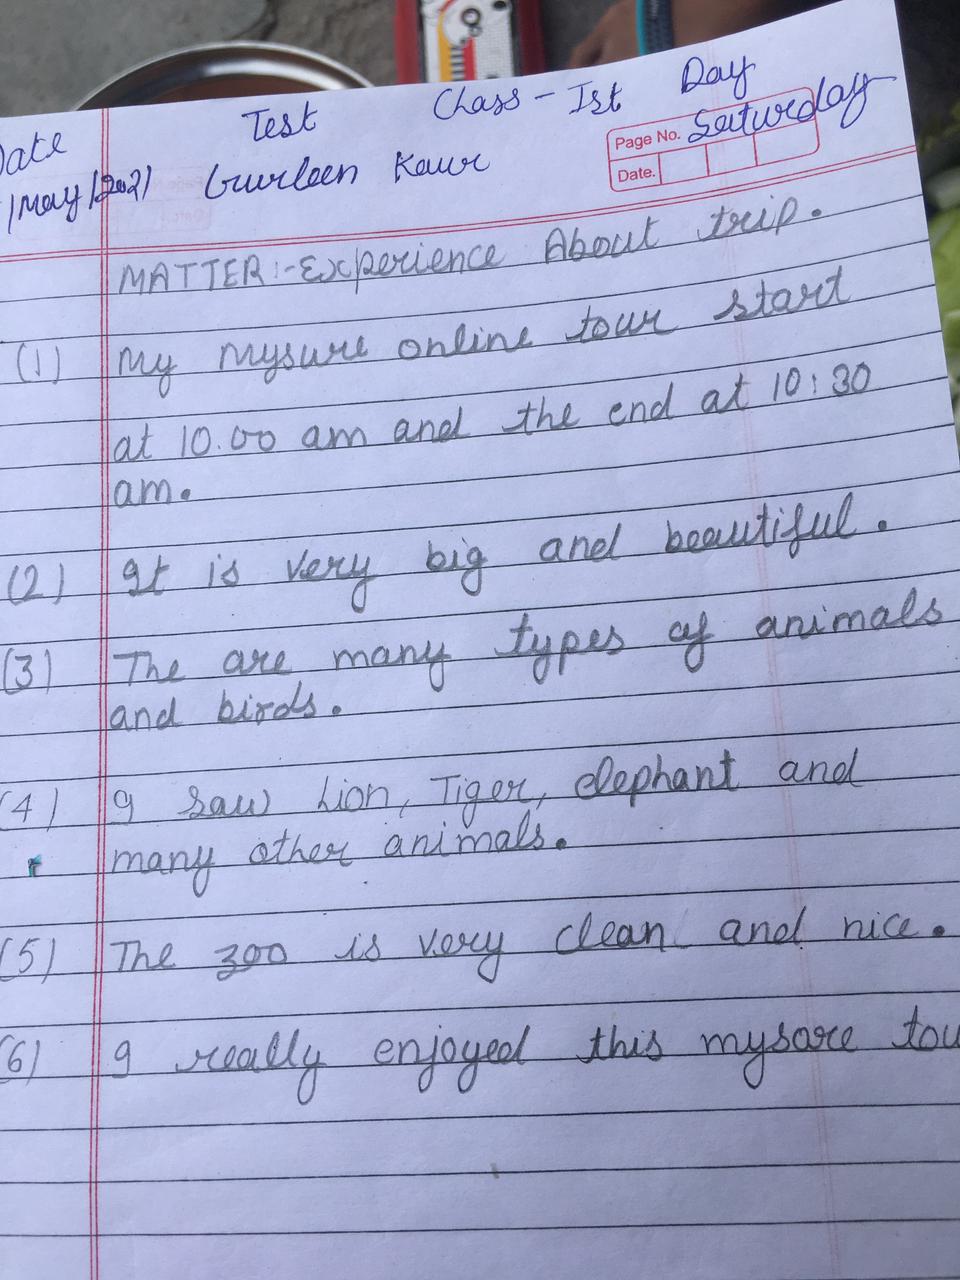 Date Test Class - Ist Day
Page No. Saturday
/May/2021 Gurleen Kaur
Date.
MATTER:- Experience About trip.
(1) My mysure online tour start
at 10.00 am and the end at 10:30
am.
(2) It is very big and beautiful.
(3) The are many types of animals
and birds.
(4) I saw Lion, Tiger, elephant and
many other animals.
(5) The zoo is very clean and nice.
(6) I really enjoyed this mysore tou